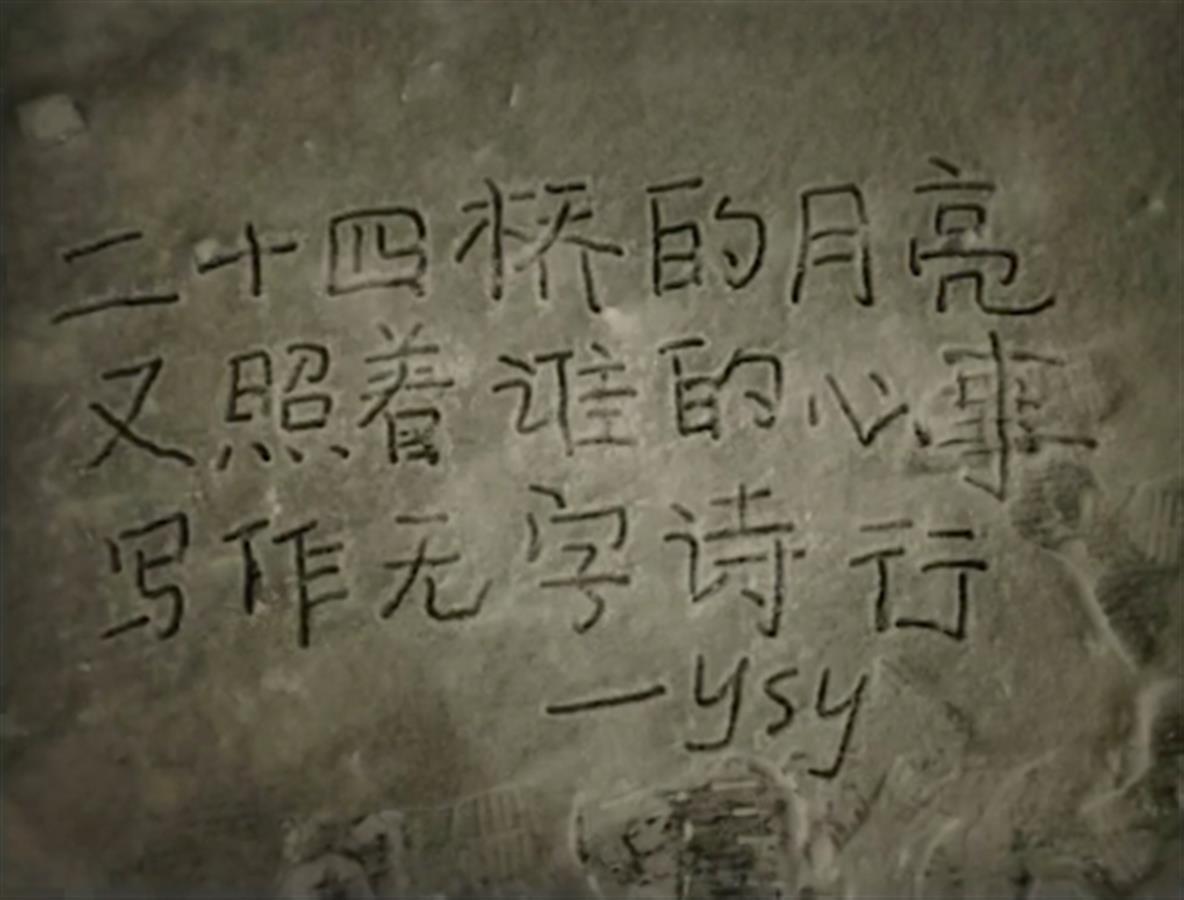 二十四桥的月亮
又照着谁的心事
写作无字诗行
—ysy